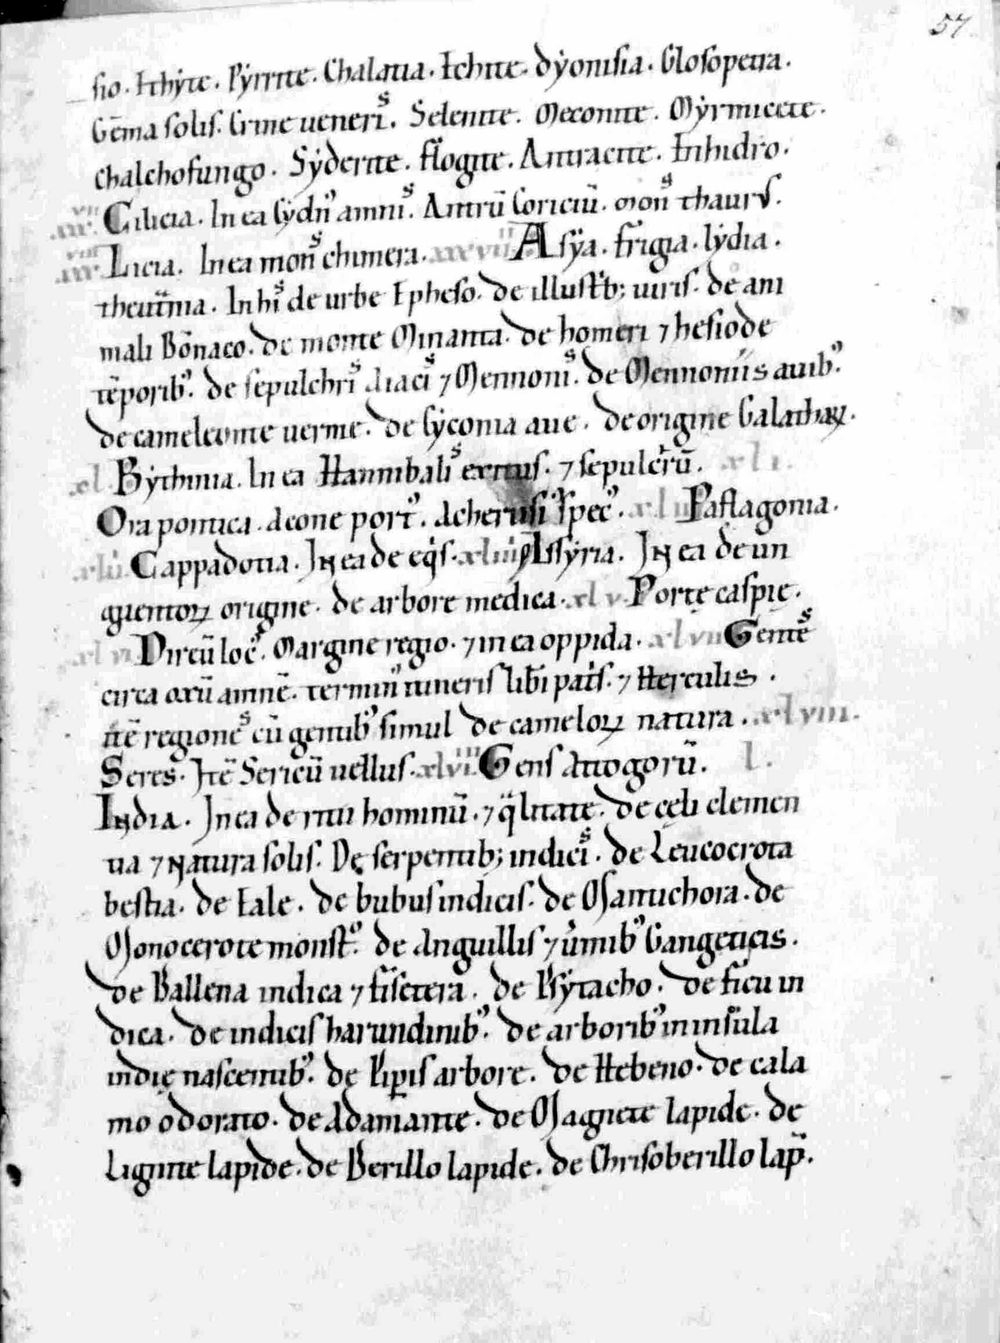 57
sio. Ithyte. Pyrrite. Chalatia. Echite. dyonisia. Glosopetra.
Gēma solis. Crine ueneris. Selenite. Meconite. Myrmicete.
Chalchofungo. Syderite. flogite. Antracite. Enhidro.
Cilicia. In ea Cydn᾽ amnis. Antrū Coriciū. mons thaurꝰ.
Licia. In ea mons chimera. xxxvii Asya. frigia. lydia.
In his de urbe Epheso. de illustrib; uiris. de ani
mali Bōnaco. de monte Mimanta. de homeri ⁊ hesiode
tēporibꝰ. de sepulchris Aiacis ⁊ Mennonis. de Mennoniis auibꝰ.
de cameleonte uerme. de syconia aue. de origine Galathaꝝ.
xl. Bythinia. In ea Hannibalis exitus. ⁊ sepulcrū. xli.
Ora pontica. Acone portꝰ. Acherusiꝰ specꝰ. xlii Paflagonia.
xliii. Cappadotia. In ea de eqis. xliiii Assyria. In ea de un
guentoꝝ origine. de arbore medica. xlv. Portę caspię.
xlvi Dirēū locꝰ. Margine regio. ⁊ in ea oppida. xlvii Gentes
circa oxū amnē. termini itineris libri patris. ⁊ Herculis.
itē regiones cū gentibꝰ simul de cameloꝝ natura. xlviii.
Seres. Itē Sericū uellus. xlviiii Gens Attogorū. l.
India. In ea de ritu hominū. ⁊ qlitate. de cęli clemen
tia ⁊ natura solis. De serpentib; indicis. de Leucocrota
bestia. de Eale. de bubus indicis. de Mantichora. de
Monocerote monstꝰ. de Anguillis ⁊ uermibꝰ Gangeticis.
de Ballena indica ⁊ fisetera. de Psytacho. de ficu in
dica. de indicis harundinibꝰ. de arboribꝰ in insula
indię nascentibꝰ. de Piꝑis arbore. de Hebeno. de cala
mo odorato. de Adamante. de Magnete lapide. de
Liginte lapide. de Berillo lapide. de Chrisoberillo lap̄.